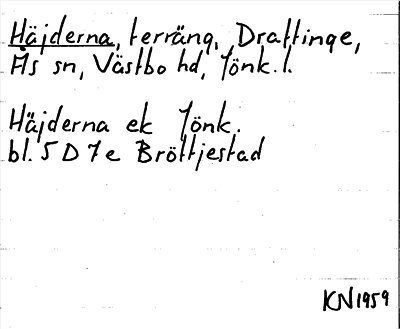 Häjderna, terräng, Drattinge,
Ås sn, Västbo hd, Jönk. l.
Häjderna ek Jönk.
bl. 5 D 7e Bröttjestad
KN 1959